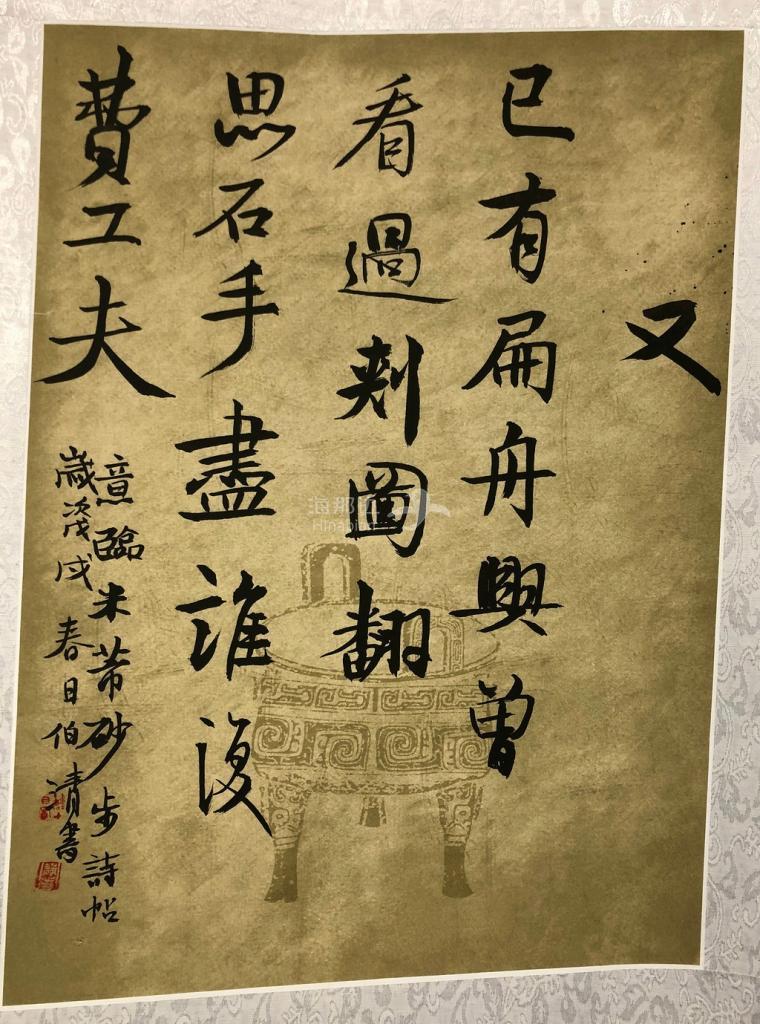 又
已有扁舟興曾
看過剡圖翻
思石手盡誰復
費工夫
意臨米芾砂步詩帖
歲次戊戌春日伯清書
海那
Hinapin